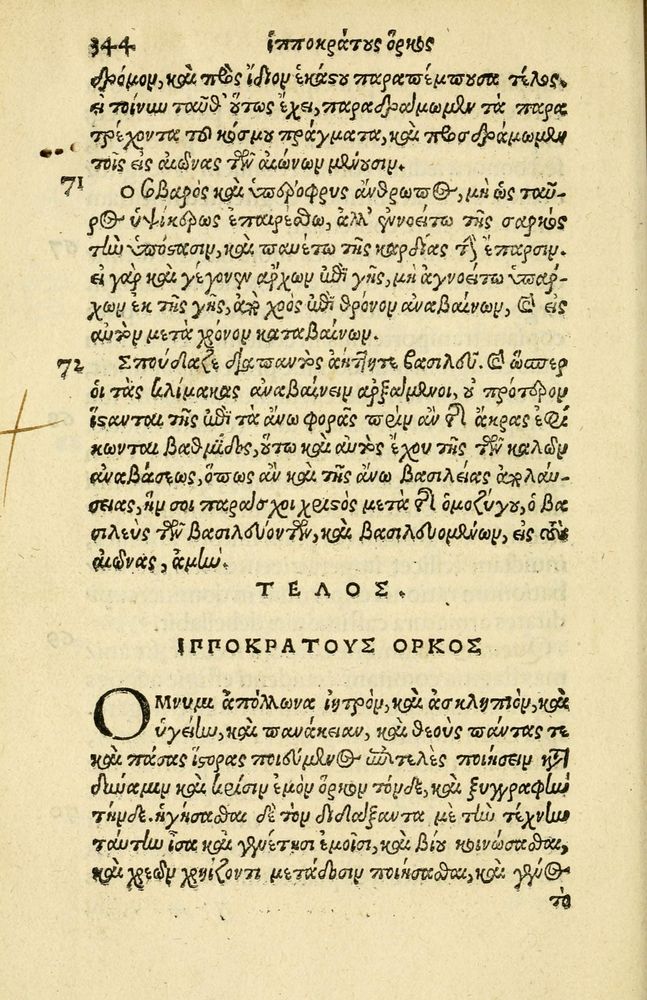 344 ἱπποκράτους ὅρκος
δρόμον, καὶ πρὸς ἴδιον ἑκάστου παραπέμπουσα τέλος.
εἰ τοίνυν ταῦθ' οὕτως ἔχει, παραδράμωμεν τὰ παρα
τρέχοντα τοῦ κόσμου πράγματα, καὶ προσδράμωμεν
τοῖς εἰς αἰῶνας τῶν αἰώνων μένουσιν.
71 Ὁ σοβαρὸς καὶ ὑπέροφρυς ἄνθρωπος, μὴ ὡς ταῦ-
ρος ὑψίκερως ἐπαιρέσθω, ἀλλ' ἐννοείτω τῆς σαρκὸς
τὴν ὑπόστασιν, καὶ παυέτω τῆς καρδίας τὴν ἔπαρσιν.
εἰ γὰρ καὶ γέγονεν ἄρχων ἐπὶ γῆς, μὴ ἀγνοείτω ὑπάρ-
χων ἐκ τῆς γῆς, ἀπὸ χοὸς ἐπὶ θρόνον ἀναβαίνων, καὶ εἰς
αὐτὸν μετὰ χρόνον καταβαίνων.
72 Σπούδαζε διαπαντὸς ἀήττητε βασιλεῦ. καὶ ὥσπερ
οἱ τὰς κλίμακας ἀναβαίνειν ἀρξάμενοι, οὐ πρότερον
ἵστανται τῆς ἐπὶ τὰ ἄνω φορᾶς πρὶν ἂν τῆς ἄκρας ἐφί
κωνται βαθμίδος, οὕτω καὶ αὐτὸς ἔχου τῆς τῶν καλῶν
ἀναβάσεως, ὅπως ἂν καὶ τῆς ἄνω βασιλείας ἀπολαύ-
σειας, ἥν σοι παράσχοι χριστὸς μετὰ τῆς ὁμοζύγου, ὁ βα
σιλεὺς τῶν βασιλευόντων, καὶ βασιλευομένων, εἰς τοὺς
αἰῶνας, ἀμήν.
ΤΕΛΟΣ.
ΙΠΠΟΚΡΑΤΟΥΣ ΟΡΚΟΣ
ΟΜνυμι ἀπόλλωνα ἰητρὸν, καὶ ἀσκληπιὸν, καὶ
ὑγείην, καὶ πανάκειαν, καὶ θεοὺς πάντας τε
καὶ πάσας ἵστορας ποιούμενος ἐπιτελὲς ποιήσειν κατὰ
δύναμιν καὶ κρίσιν ἐμὸν ὅρκον τόνδε, καὶ ξυγγραφὴν
τήνδε. ἡγήσασθαι δὲ τὸν διδάξαντα με τὴν τέχνην
ταύτην ἶσα καὶ γενέτησι ἐμοῖσι, καὶ βίου κοινώσασθαι,
καὶ χρεῶν χρηΐζοντι μετάδοσιν ποιήσασθαι, καὶ γένος
τὸ